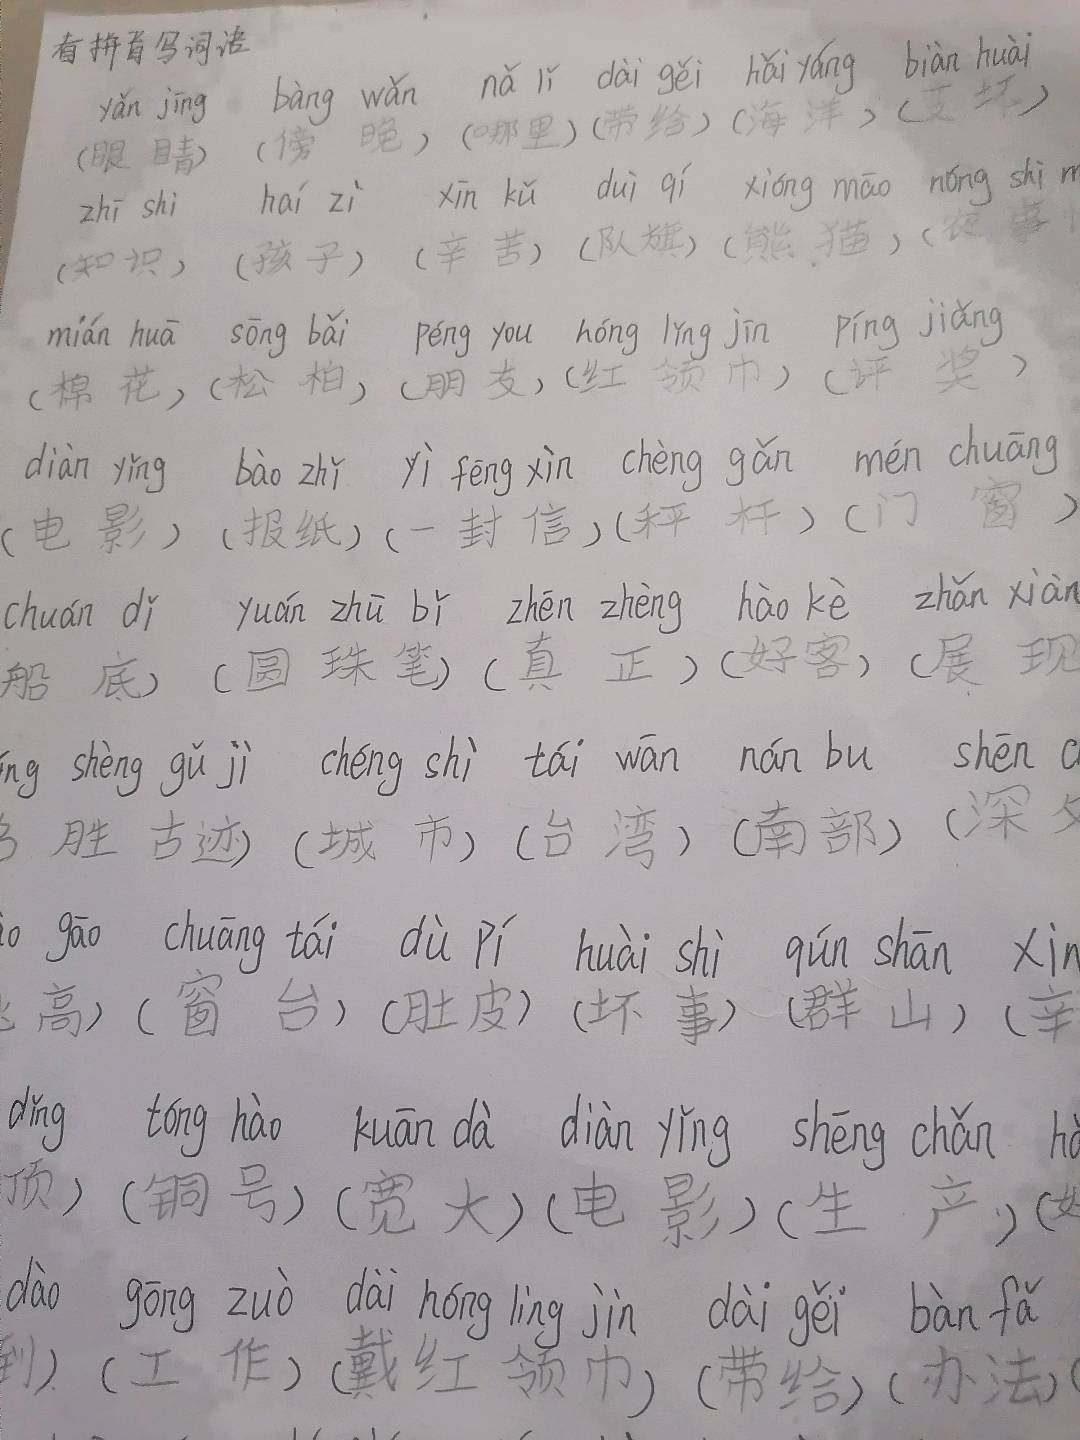 看拼音写词语
yǎn jīng bàng wǎn nǎ lǐ dài gěi hǎi yáng biàn huài
(眼睛) (傍晚) (哪里) (带给) (海洋) (变坏)
zhī shi haí zi xīn kǔ duì qí xióng māo nóng shì
(知识) (孩子) (辛苦) (队旗) (熊猫) (农事
mián huā sōng bǎi péng you hóng lǐng jīn píng jiǎng
(棉花) (松柏) (朋友) (红领巾) (评奖)
diàn yǐng bào zhǐ yì fēng xìn chèng gǎn mén chuāng
(电影) (报纸) (一封信) (秤杆) (门窗)
chuán dǐ yuán zhū bǐ zhēn zhèng hào kè zhǎn xiàn
船底) (圆珠笔) (真正) (好客) (展现
shèng gǔ jì chéng shì tái wān nán bu shēn
胜古迹) (城市) (台湾) (南部) (深
gāo chuāng tái dù pí huài shì qún shān
高) (窗台) (肚皮) (坏事) (群山) (辛
dǐng tóng hào kuān dà diàn yǐng shēng chǎn
顶) (铜号) (宽大) (电影) (生产)
dào gōng zuò dài hóng lǐng jìn dài gěi bàn fǎ
到) (工作) (戴红领巾) (带给) (办法)